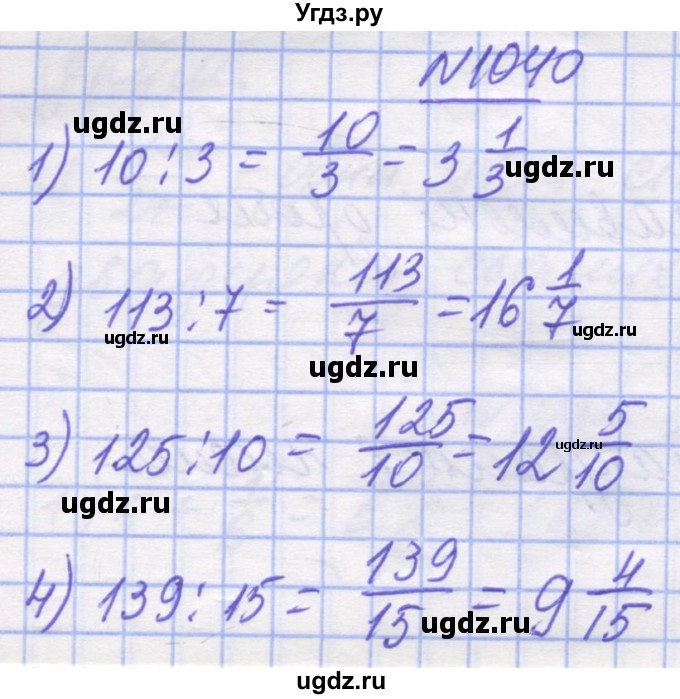 Угдз.ру
N1040
ugdz.ru
1) 10 : 3 = 10/3 = 3 1/3
ugdz.ru
ugdz.ru
2) 113 : 7 = 113/7 = 16 1/7
ugdz.ru
ugdz.ru
ugdz.ru
3) 125 : 10 = 125/10 = 12 5/10
ugdz.ru
ugdz.ru
4) 139 : 15 = 139/15 = 9 4/15
ugdz.ru
ugdz.ru